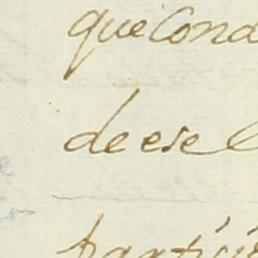 que Cond
de ese
partici